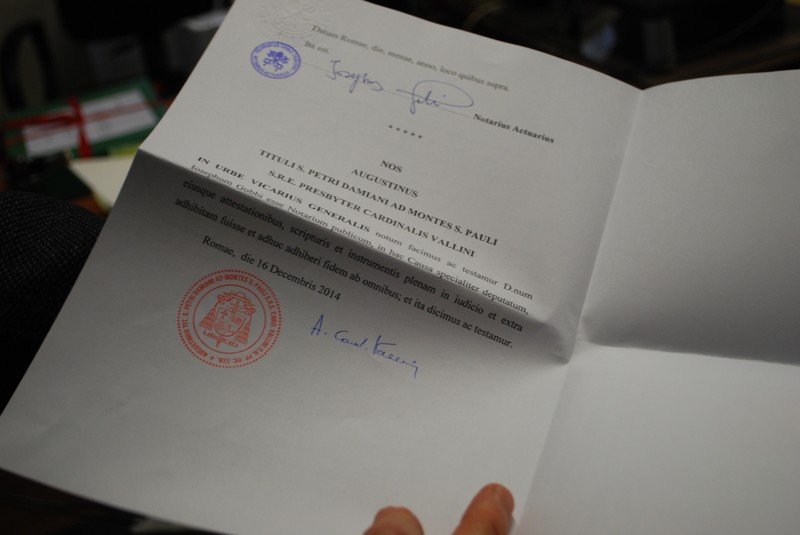 Datum Romae, die, mense, anno, loco quibus supra
Ita est.
Notarius Actuarius
*****
NOS
AUGUSTINUS
TITULI S. PETRI DAMIANI AD MONTES S. PAULI
S.R.E. PRESBYTER CARDINALIS VALLINI
IN URBE VICARIUS GENERALIS notum facimus ac testamur D.num
Iosephum Gobbi esse Notarium publicum, in hac Causa specialiter deputatum,
eiusque attestationibus, scripturis et instrumentis plenam in iudicio et extra
adhibitam fuisse et adhuc adhiberi fidem ab omnibus; et ita dicimus ac testamur.
Romae, die 16 Decembris 2014
A. Card. Vallini